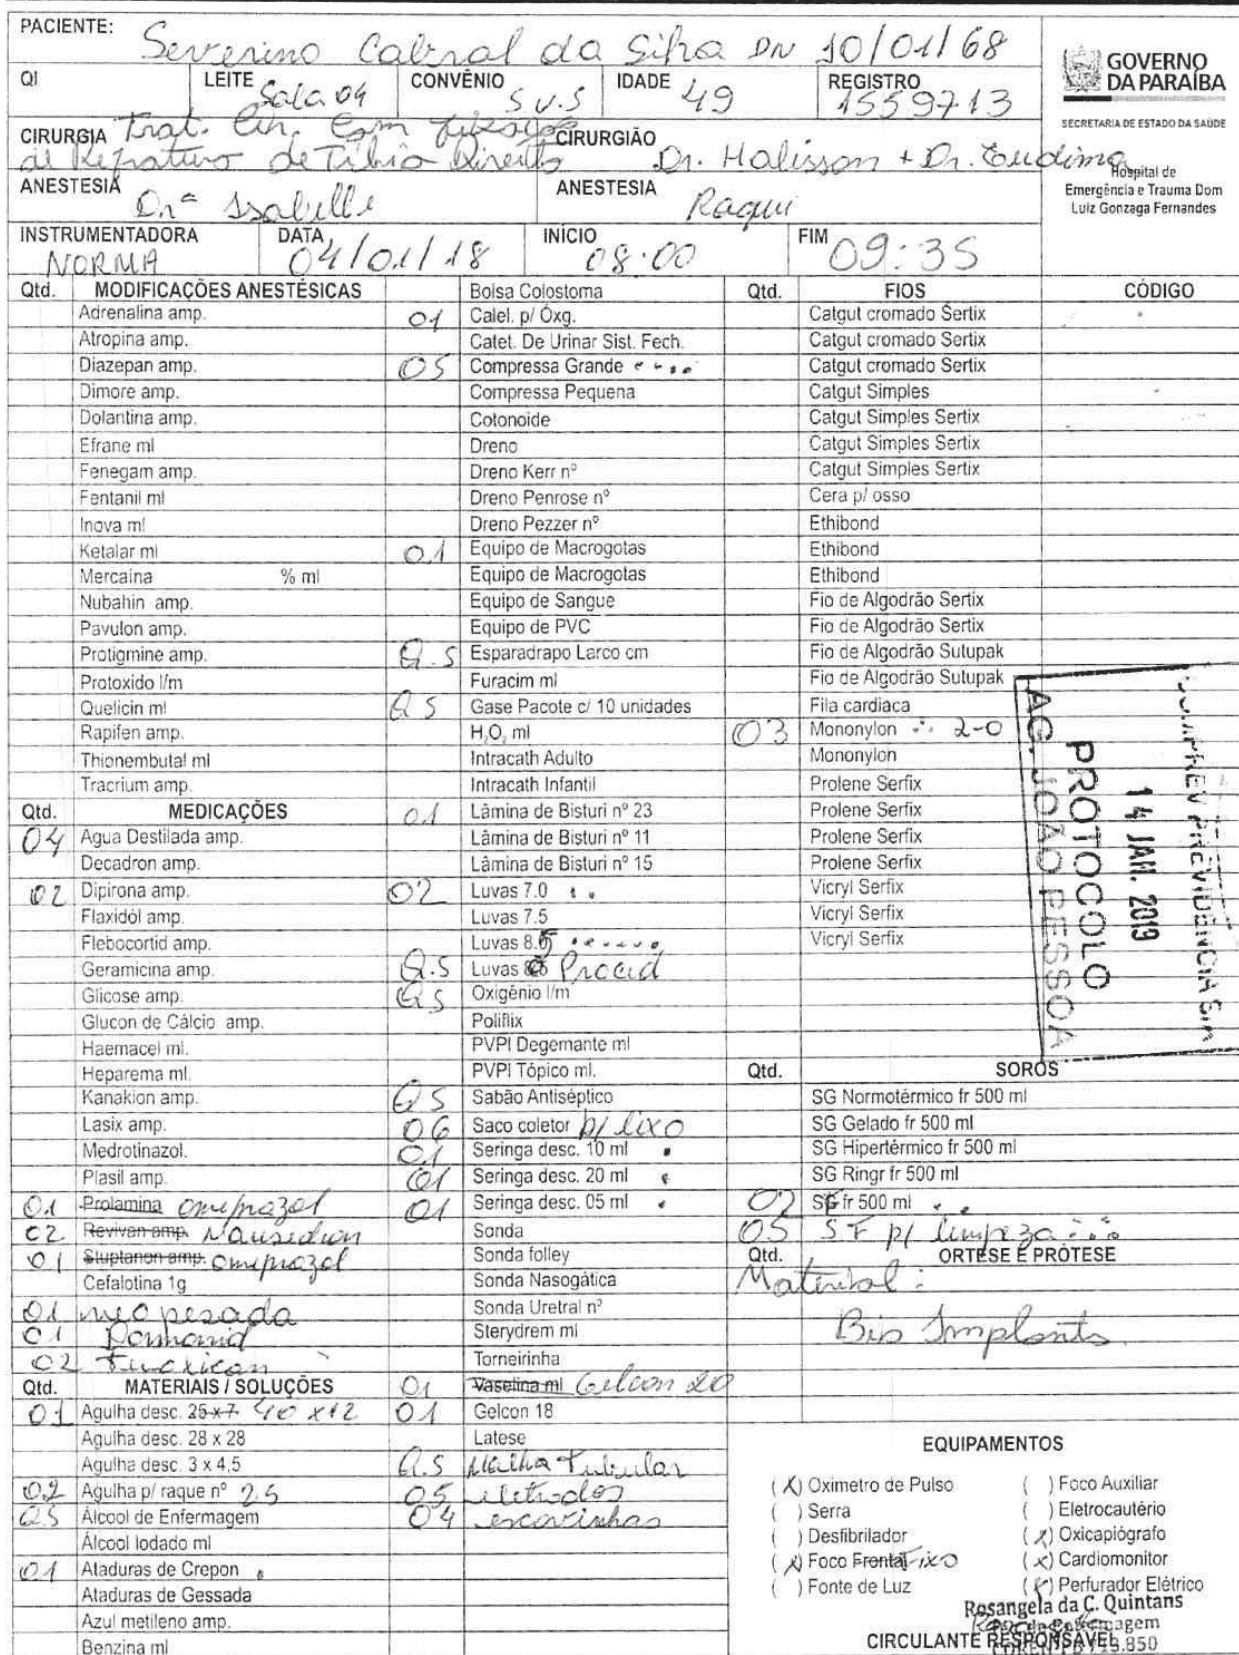 PACIENTE: Severino Cabral da Silva DN 10/01/68
QI LEITE Sala 04 CONVÊNIO S.U.S IDADE 49 REGISTRO 1559713
GOVERNO
DA PARAÍBA
SECRETARIA DE ESTADO DA SAÚDE
Hospital de
Emergência e Trauma Dom
Luiz Gonzaga Fernandes
CIRURGIA Trat. Cir. Com
de Tibia Direito
CIRURGIÃO Dr. Halisson + Dr.
ANESTESIA Drª Isabelle ANESTESIA Raqui
INSTRUMENTADORA NORMA DATA 04/01/18 INÍCIO 08:00 FIM 09:35
Qtd. MODIFICAÇÕES ANESTÉSICAS
Adrenalina amp.
Atropina amp.
Diazepan amp.
Dimore amp.
Dolantina amp.
Efrane ml
Fenegam amp.
Fentanil ml
Inova ml
Ketalar ml
Mercaina % ml
Nubahin amp.
Pavulon amp.
Protigmine amp.
Protoxido l/m
Quelicin ml
Rapifen amp.
Thionembutal ml
Tracrium amp.
Qtd. MEDICAÇÕES
04 Agua Destilada amp.
Decadron amp.
02 Dipirona amp.
Flaxidól amp.
Flebocortid amp.
Geramicina amp.
Glicose amp.
Glucon de Cálcio amp.
Haemacel ml.
Heparema ml.
Kanakion amp.
Lasix amp.
Medrotinazol.
Plasil amp.
01 Prolamina omeprazol
02 Revivan amp. Nausedron
01 Stuptanon amp. omeprazol
Cefalotina 1g
01 neo pesada
01
02
Qtd. MATERIAIS / SOLUÇÕES
01 Agulha desc. 25 x 7 40 x 12
Agulha desc. 28 x 28
Agulha desc. 3 x 4,5
02 Agulha p/ raque nº 25
Q.S Álcool de Enfermagem
Álcool Iodado ml
01 Ataduras de Crepon
Ataduras de Gessada
Azul metileno amp.
Benzina ml
Bolsa Colostoma
01 Catet. p/ Óxg.
Catet. De Urinar Sist. Fech.
05 Compressa Grande
Compressa Pequena
Cotonoide
Dreno
Dreno Kerr nº
Dreno Penrose nº
Dreno Pezzer nº
01 Equipo de Macrogotas
Equipo de Macrogotas
Equipo de Sangue
Equipo de PVC
Q.S Esparadrapo Larco cm
Furacim ml
Q S Gase Pacote c/ 10 unidades
H₂O₂ ml
Intracath Adulto
Intracath Infantil
01 Lâmina de Bisturi nº 23
Lâmina de Bisturi nº 11
Lâmina de Bisturi nº 15
02 Luvas 7.0
Luvas 7.5
Luvas 8.0
Q.S Luvas Proced
Q S Oxigênio l/m
Poliflix
PVPI Degemante ml
PVPI Tópico ml.
Q S Sabão Antiséptico
06 Saco coletor p/ lixo
01 Seringa desc. 10 ml
01 Seringa desc. 20 ml
01 Seringa desc. 05 ml
Sonda
Sonda folley
Sonda Nasogática
Sonda Uretral nº
Sterydrem ml
Torneirinha
01 Vaselina ml Gelcon 20
01 Gelcon 18
Latese
Q.S Malha Tubular
05 eletrodos
04 escovinhas
Qtd. FIOS CÓDIGO
Catgut cromado Sertix
Catgut cromado Sertix
Catgut cromado Sertix
Catgut Simples
Catgut Simples Sertix
Catgut Simples Sertix
Catgut Simples Sertix
Cera p/ osso
Ethibond
Ethibond
Ethibond
Fio de Algodrão Sertix
Fio de Algodrão Sertix
Fio de Algodrão Sutupak
Fio de Algodrão Sutupak
Fila cardiaca
03 Mononylon 2-0
Mononylon
Prolene Serfix
Prolene Serfix
Prolene Serfix
Prolene Serfix
Vicryl Serfix
Vicryl Serfix
Vicryl Serfix
PREVIDÊNCIA S/A
14 JAN. 2019
PROTOCOLO
AG. JOÃO PESSOA
Qtd. SOROS
SG Normotérmico fr 500 ml
SG Gelado fr 500 ml
SG Hipertérmico fr 500 ml
SG Ringr fr 500 ml
02 SF fr 500 ml
05 SF p/ limpeza
Qtd. ORTESE E PRÓTESE
Material:
Bio Implants
EQUIPAMENTOS
(X) Oximetro de Pulso ( ) Foco Auxiliar
( ) Serra ( ) Eletrocautério
( ) Desfibrilador (X) Oxicapiógrafo
(X) Foco Frontal Fixo (X) Cardiomonitor
( ) Fonte de Luz (X) Perfurador Elétrico
Rosangela da C. Quintans
CIRCULANTE RESPONSÁVEL